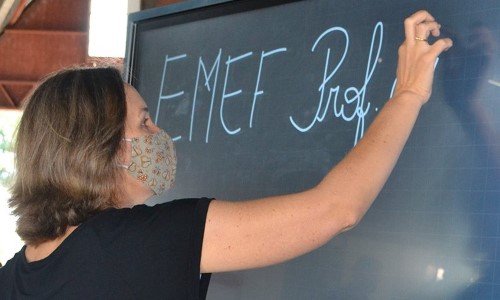 EMEF Prof.